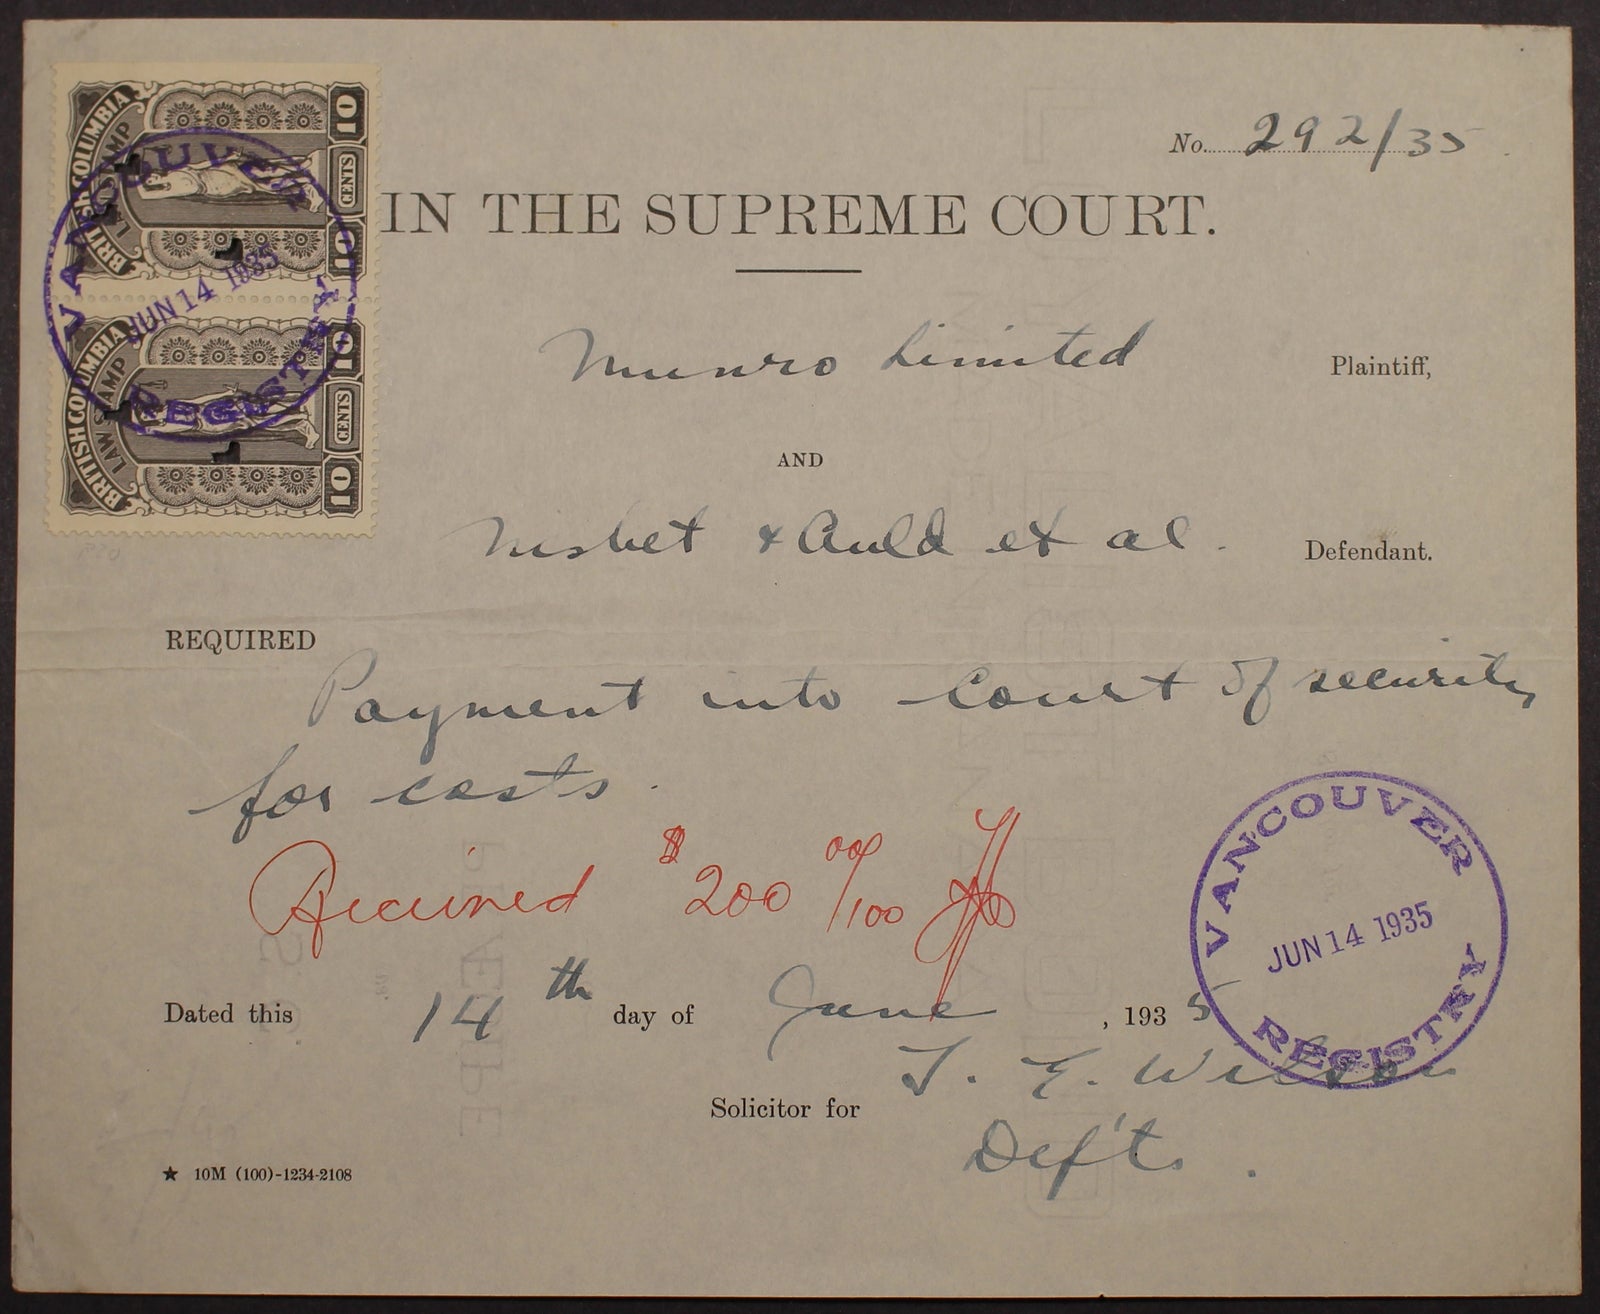 BRITISH COLUMBIA
LAW STAMP
10 CENTS 10
BRITISH COLUMBIA
LAW STAMP
10 CENTS 10
VANCOUVER
JUN 14 1935
REGISTRY
No. 292/35
IN THE SUPREME COURT.
Munro Limited Plaintiff,
AND
Nisbet & Auld et al. Defendant.
REQUIRED
Payment into Court of security
for costs.
Received $200 00/100
VANCOUVER
JUN 14 1935
REGISTRY
Dated this 14th day of June, 1935
T. E. Wilson
Solicitor for Def'ts.
★ 10M (100)-1234-2108